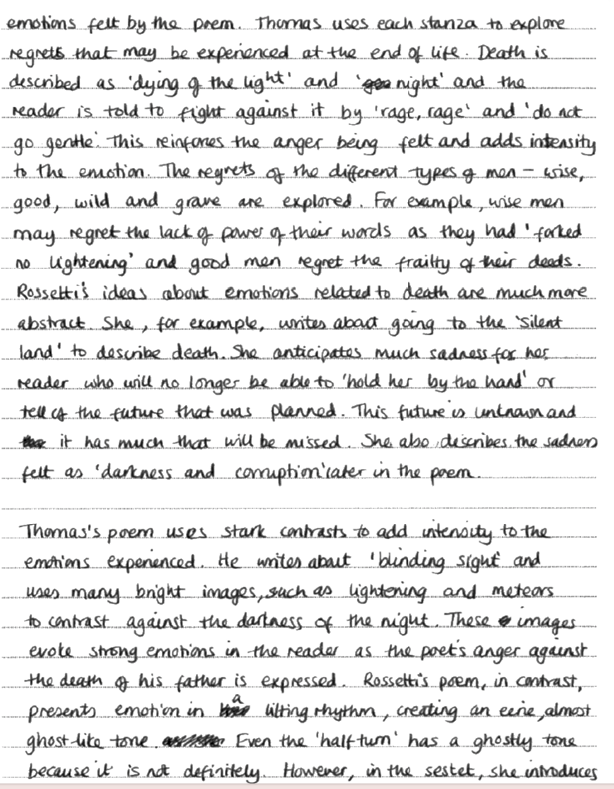 emotions felt by the poem. Thomas uses each stanza to explore
regrets that may be experienced at the end of life. Death is
described as 'dying of the light' and 'night' and the
reader is told to fight against it by 'rage, rage' and 'do not
go gentle'. This reinforces the anger being felt and adds intensity
to the emotion. The regrets of the different types of men – wise,
good, wild and grave are explored. For example, wise men
may regret the lack of power of their words as they had 'forked
no lightening' and good men regret the frailty of their deeds.
Rossetti's ideas about emotions related to death are much more
abstract. She, for example, writes about going to the 'silent
land' to describe death. She anticipates much sadness for her
reader who will no longer be able to 'hold her by the hand' or
tell of the future that was planned. This future is unknown and
it has much that will be missed. She also describes the sadness
felt as 'darkness and corruption' later in the poem.
Thomas's poem uses stark contrasts to add intensity to the
emotions experienced. He writes about 'blinding sight' and
uses many bright images, such as lightening and meteors
to contrast against the darkness of the night. These images
evoke strong emotions in the reader as the poet's anger against
the death of his father is expressed. Rossetti's poem, in contrast,
presents emotion in a lilting rhythm, creating an eerie, almost
ghost-like tone. Even the 'half turn' has a ghostly tone
because it is not definitely. However, in the sestet, she introduces